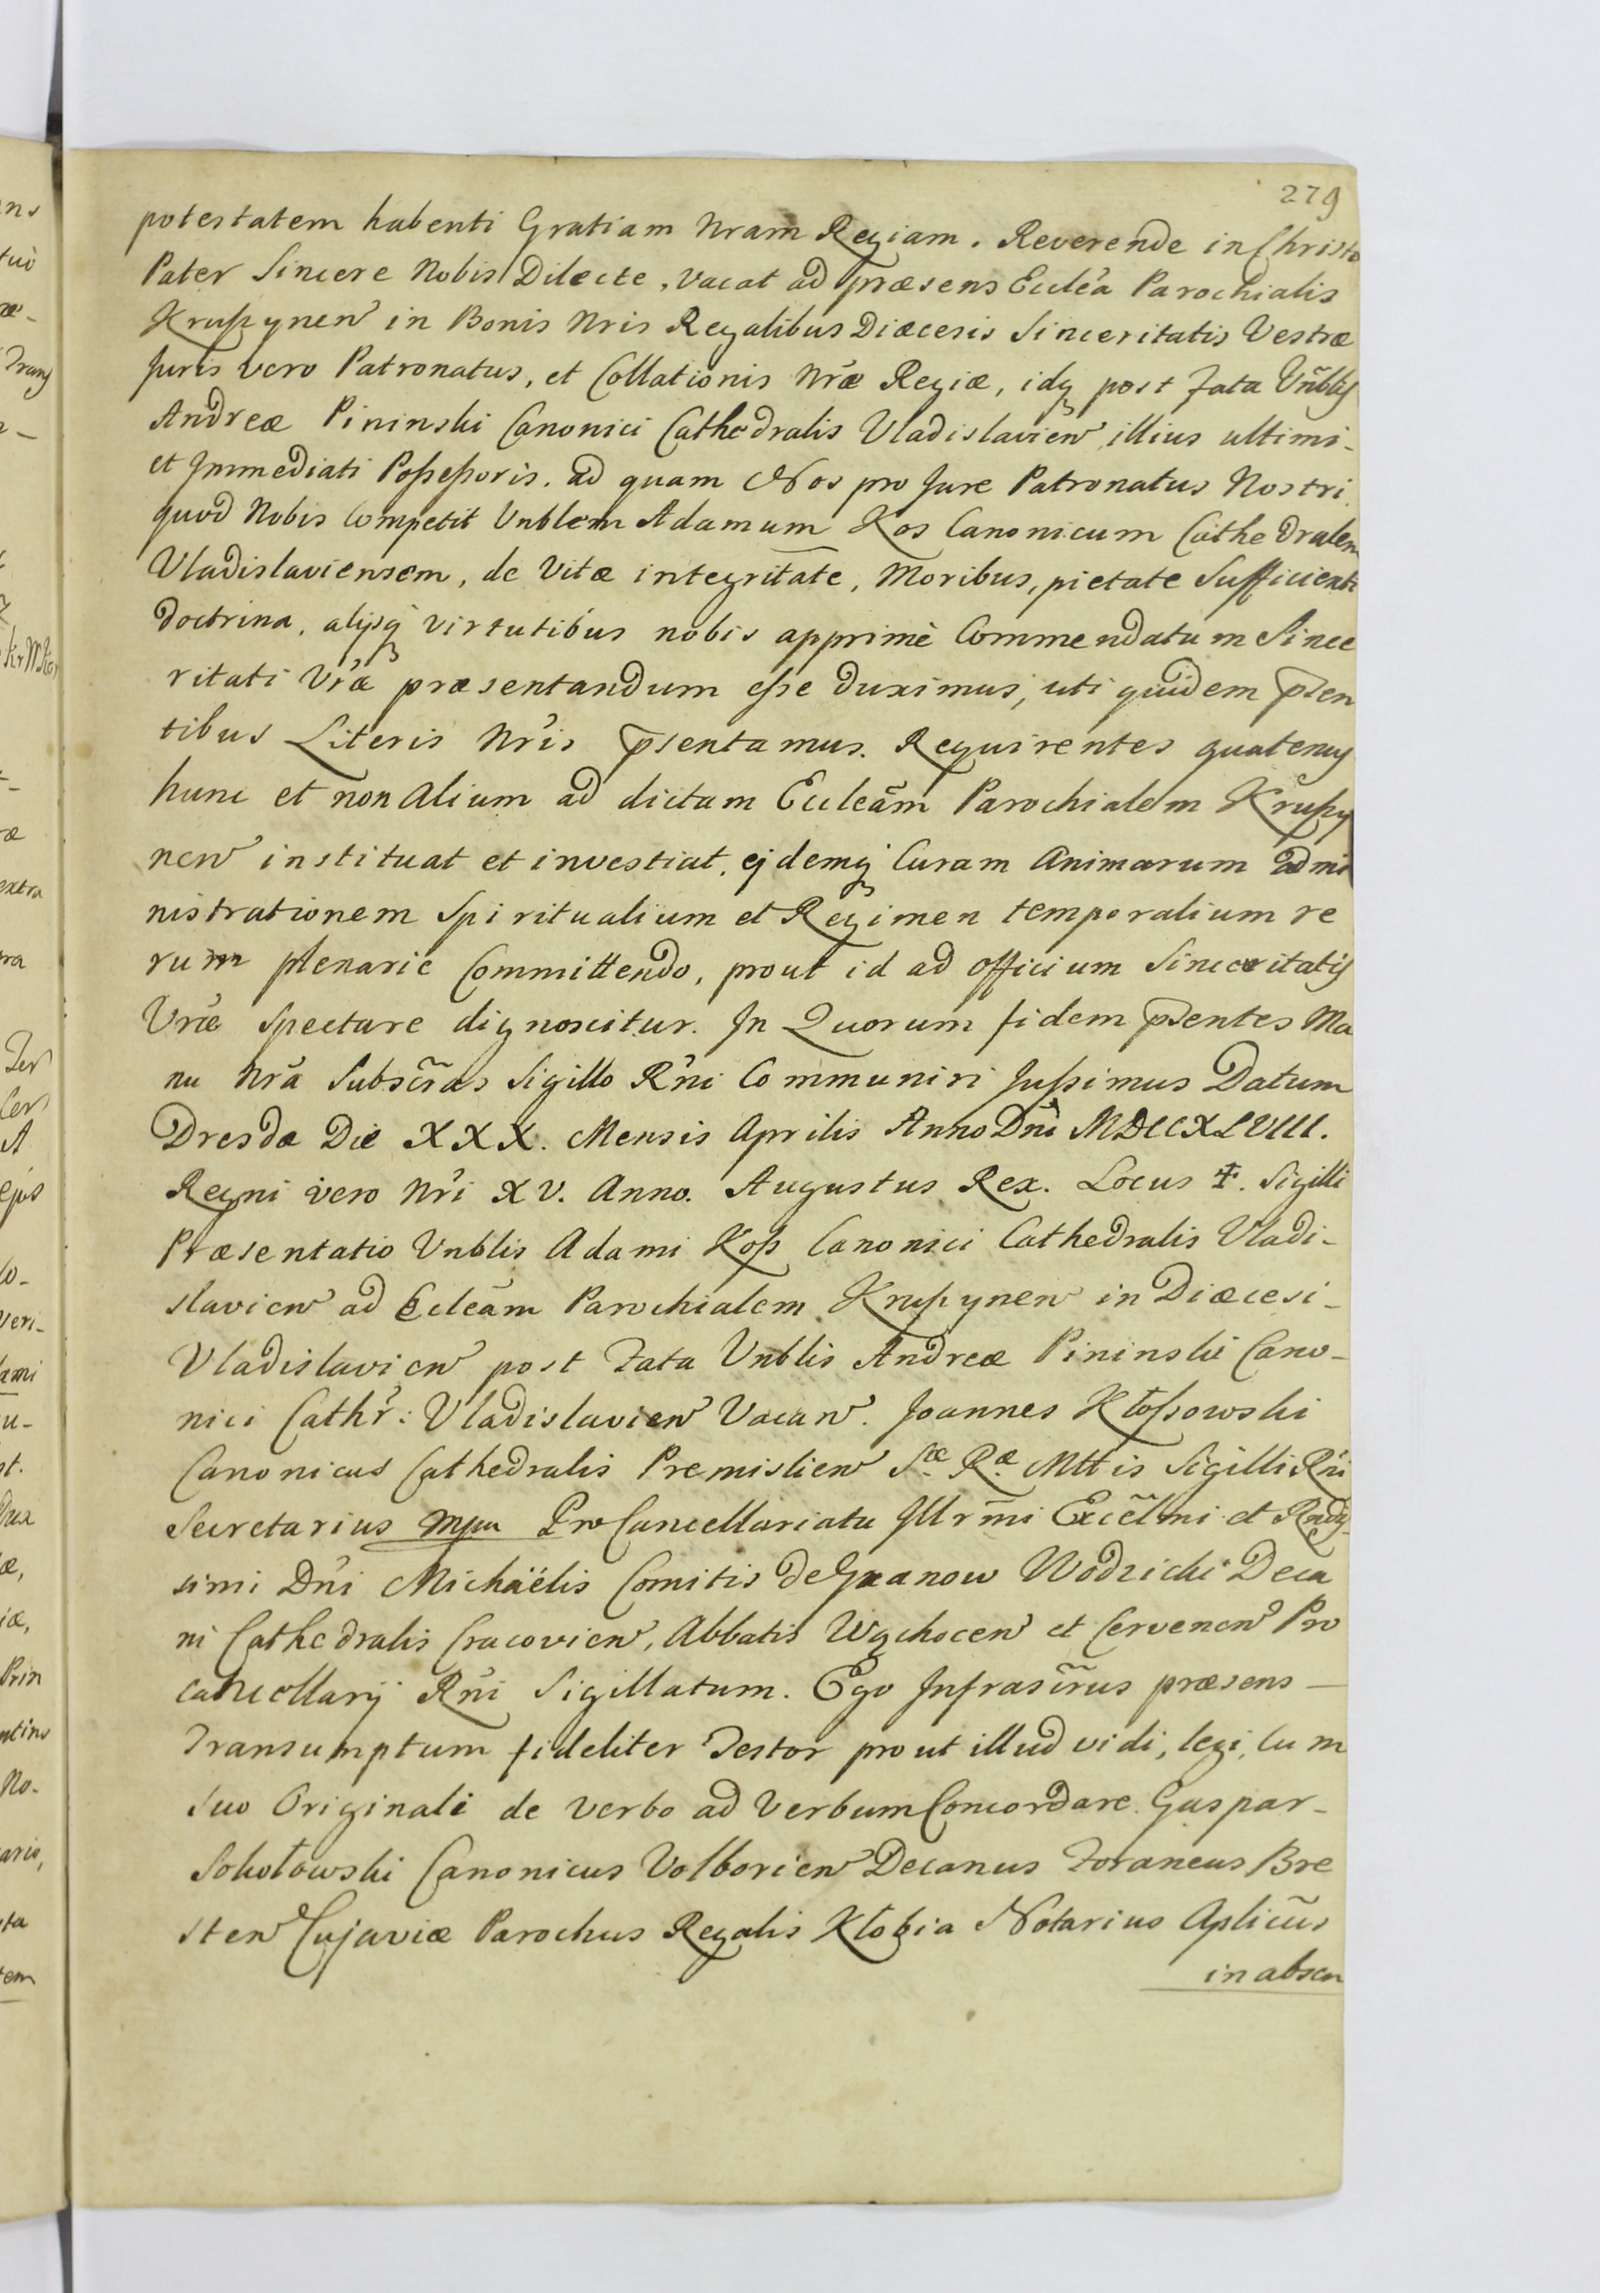 279
potestatem habenti Gratiam Nram Regiam. Reverende in Christo
Pater Sincere Nobis Dilecte, vacat ad præsens Eccle᷉a Parochialis
Krupynen̄ in Bonis Nris Regalibus Diæcesis Sinceritatis Vestræ
Juris vero Patronatus, et Collationis Nræ Regiæ, idq post Fata Vn̄blis
Andreæ Pininski Canonici Cathedralis Vladislavien̄ illius ultimi-
et Immediati Poßeßoris. ad quam Nos pro Jure Patronatus Nostri
quod Nobis Competit Vnblem Adamum Kos Canonicum Cathedralem
Vladislaviensem, de Vitæ integritate, Moribus, pietate Sufficienti
doctrina, alijsq virtutibus nobis apprimè Commendatum Since
ritati Vræ præsentandum eße duximus, uti quidem p̄sen
tibus Literis Nris p̄sentamus. Requirentes quatenus
hunc et non Alium ad dictam Ecclēam Parochialem Krußy
nen̄ instituat et investiat, ejdemq Curam Animarum admi
nistrationem Spiritualium et Regimen temporalium re
rum plenarie Committendo, prout id ad officium Sinceritatis
Vræ Spectare dignoscitur. In Quorum fidem p̄sentes Ma
nu Nrā Subscr̄as Sigillo Rni Communiri Jußimus Datum
Dresdæ Die XXX. Mensis Aprilis Anno Dn̄i MDCCXLVIII.
Regni vero Nri XV. Anno. Augustus Rex. Locus ‡. Sigilli
Præsentatio Vnblis Adami Koß Canonici Cathedralis Vladi-
slavien̄ ad Ecclēam Parochialem Krußynen̄ in Diæcesi-
Vladislavien̄ post Fata Vnblis Andreæ Pininski Cano-
nici Cathr: Vladislavien̄ Vacan̄. Joannes Kłoßowski
Canonicus Cathedralis Premislien̄ Sæ Ræ Mttis Sigilli Rni
Secretarius Mpu Pro Cancellariatu Illrm̄i Excēlmi et Rndis-
simi Dn̄i Michäelis Comitis de Granow Wodzicki Deca
ni Cathedralis Cracovien̄, Abbatis Wąchocen̄ et Cervenen̄ Pro
cancellarij Rni Sigillatum. Ego Infrascr̄us præsens —
Transumptum fideliter Testor prout illud vidi, legi, cum
suo Originali de verbo ad Verbum Concordare. Gaspar-
Sokołowski Canonicus Volborien̄ Decanus Foraneus Bre
sten̄ Cujaviæ Parochus Regalis Kłobia Notarius Aplicūs
in absen